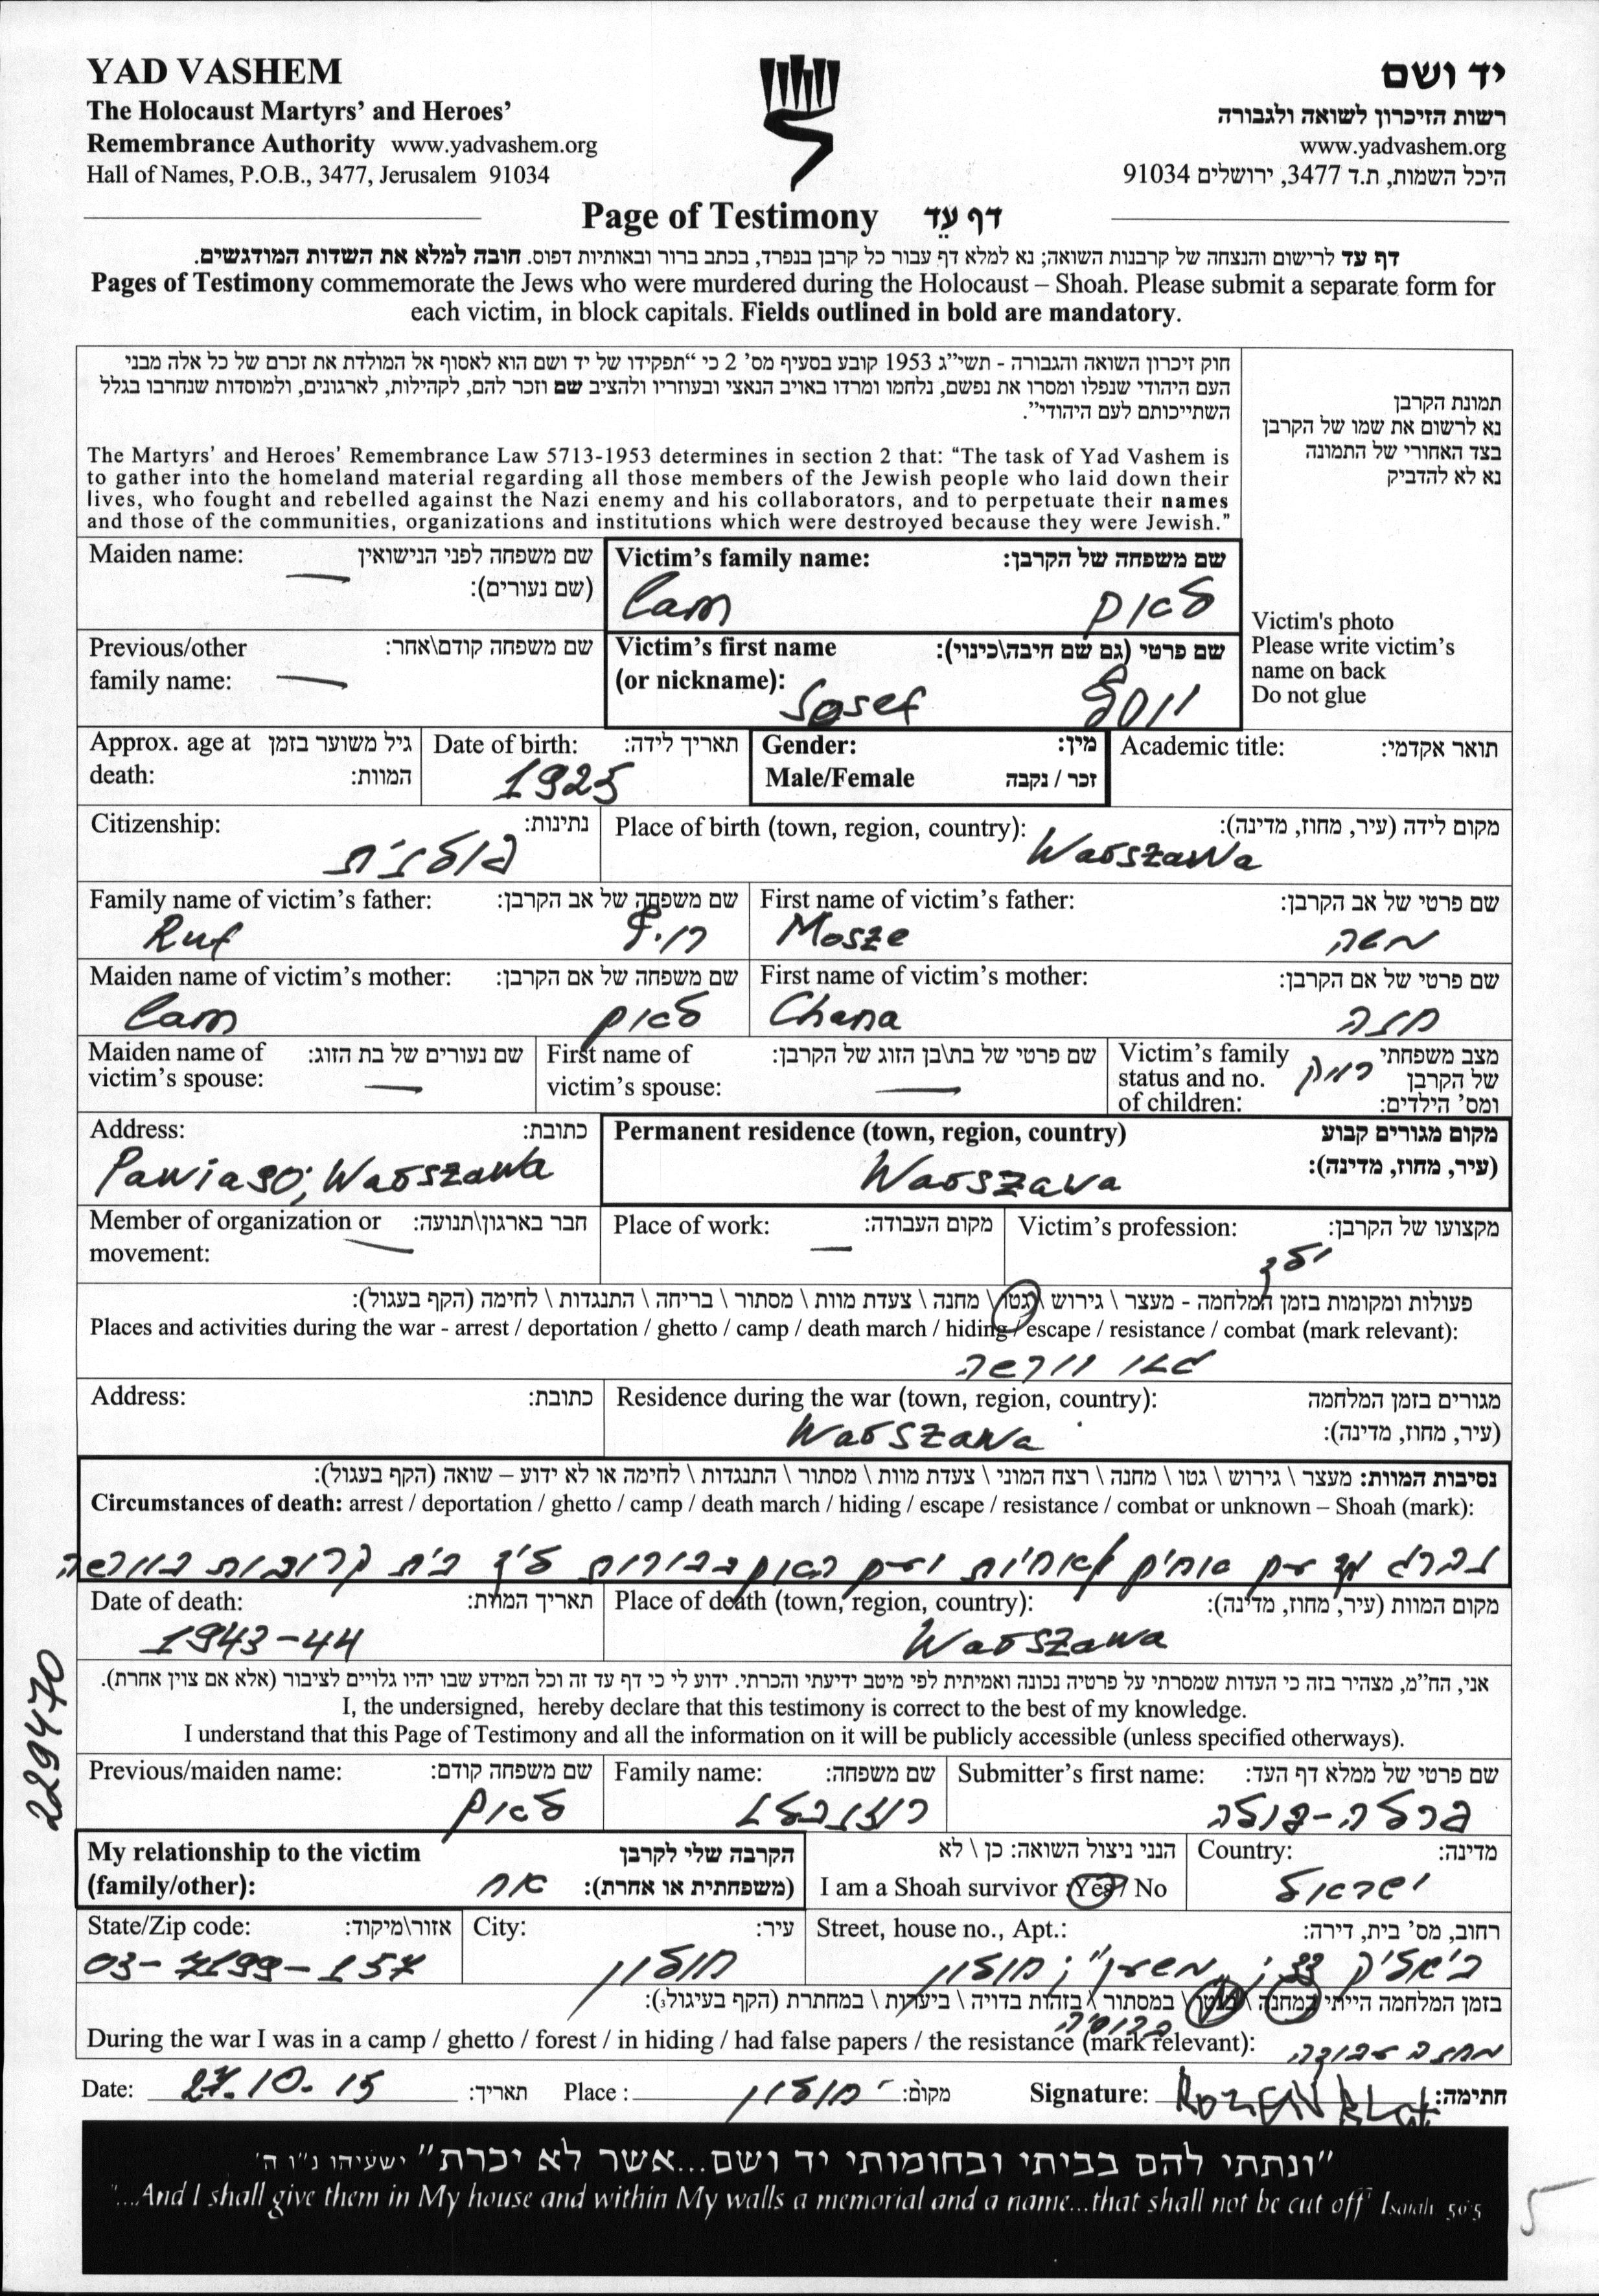 YAD VASHEM
The Holocaust Martyrs’ and Heroes’
Remembrance Authority www.yadvashem.org
Hall of Names, P.O.B., 3477, Jerusalem 91034
יד ושם
רשות הזיכרון לשואה ולגבורה
www.yadvashem.org
היכל השמות, ת.ד 3477, ירושלים 91034
Page of Testimony דף עֵד
דף עד לרישום והנצחה של קרבנות השואה; נא למלא דף עבור כל קרבן בנפרד, בכתב ברור ובאותיות דפוס. חובה למלא את השדות המודגשים.
Pages of Testimony commemorate the Jews who were murdered during the Holocaust – Shoah. Please submit a separate form for
each victim, in block capitals. Fields outlined in bold are mandatory.
חוק זיכרון השואה והגבורה - תשי״ג 1953 קובע בסעיף מס׳ 2 כי “תפקידו של יד ושם הוא לאסוף אל המולדת את זכרם של כל אלה מבני
העם היהודי שנפלו ומסרו את נפשם, נלחמו ומרדו באויב הנאצי ובעוזריו ולהציב שם וזכר להם, לקהילות, לארגונים, ולמוסדות שנחרבו בגלל
השתייכותם לעם היהודי”.
The Martyrs’ and Heroes’ Remembrance Law 5713-1953 determines in section 2 that: “The task of Yad Vashem is
to gather into the homeland material regarding all those members of the Jewish people who laid down their
lives, who fought and rebelled against the Nazi enemy and his collaborators, and to perpetuate their names
and those of the communities, organizations and institutions which were destroyed because they were Jewish.”
תמונת הקרבן
נא לרשום את שמו של הקרבן
בצד האחורי של התמונה
נא לא להדביק
Victim's photo
Please write victim’s
name on back
Do not glue
Maiden name: שם משפחה לפני הנישואין
(שם נעורים):
—
Victim’s family name: שם משפחה של הקרבן:
Lam לאום
Previous/other שם משפחה קודם\אחר:
family name: —
Victim’s first name שם פרטי (גם שם חיבה\כינוי):
(or nickname): Josef יוסף
Approx. age at גיל משוער בזמן
death: המוות:
Date of birth: תאריך לידה:
1925
Gender: מין:
Male/Female זכר / נקבה
Academic title: תואר אקדמי:
Citizenship: נתינות:
פולנית
Place of birth (town, region, country): מקום לידה (עיר, מחוז, מדינה):
Warszawa
Family name of victim’s father: שם משפחה של אב הקרבן:
Ruf רויף
First name of victim’s father: שם פרטי של אב הקרבן:
Mosze משה
Maiden name of victim’s mother: שם משפחה של אם הקרבן:
Lam לאום
First name of victim’s mother: שם פרטי של אם הקרבן:
Chana חנה
Maiden name of שם נעורים של בת הזוג:
victim’s spouse: —
First name of שם פרטי של בת\בן הזוג של הקרבן:
victim’s spouse: —
Victim’s family מצב משפחתי
status and no. של הקרבן
of children: ומס׳ הילדים:
רווק
Address: כתובת:
Pawia 30; Warszawa
Permanent residence (town, region, country) מקום מגורים קבוע
(עיר, מחוז, מדינה):
Warszawa
Member of organization or חבר בארגון\תנועה:
movement: —
Place of work: מקום העבודה:
—
Victim’s profession: מקצועו של הקרבן:
ילד
פעולות ומקומות בזמן המלחמה - מעצר \ גירוש \ גטו \ מחנה \ צעדת מוות \ מסתור \ בריחה \ התנגדות \ לחימה (הקף בעגול):
Places and activities during the war - arrest / deportation / ghetto / camp / death march / hiding / escape / resistance / combat (mark relevant):
גטו וורשה
Address: כתובת:
Residence during the war (town, region, country): מגורים בזמן המלחמה
(עיר, מחוז, מדינה):
Warszawa
נסיבות המוות: מעצר \ גירוש \ גטו \ מחנה \ רצח המוני \ צעדת מוות \ מסתור \ התנגדות \ לחימה או לא ידוע – שואה (הקף בעגול):
Circumstances of death: arrest / deportation / ghetto / camp / death march / hiding / escape / resistance / combat or unknown – Shoah (mark):
עם אחים ואחיות ועם האם בבורות ליד בית קברות בוורשה
Date of death: תאריך המוות:
1943-44
Place of death (town, region, country): מקום המוות (עיר, מחוז, מדינה):
Warszawa
אני, הח״מ, מצהיר בזה כי העדות שמסרתי על פרטיה נכונה ואמיתית לפי מיטב ידיעתי והכרתי. ידוע לי כי דף עד זה וכל המידע שבו יהיו גלויים לציבור (אלא אם צוין אחרת).
I, the undersigned, hereby declare that this testimony is correct to the best of my knowledge.
I understand that this Page of Testimony and all the information on it will be publicly accessible (unless specified otherways).
229470
Previous/maiden name: שם משפחה קודם:
לאום
Family name: שם משפחה:
רוזנבלט
Submitter’s first name: שם פרטי של ממלא דף העד:
פרלה-פולה
My relationship to the victim הקרבה שלי לקרבן
(family/other): (משפחתית או אחרת):
אח
הנני ניצול השואה: כן \ לא
I am a Shoah survivor :Yes / No
Country: מדינה:
ישראל
State/Zip code: אזור\מיקוד:
03-7199-157
City: עיר:
חולון
Street, house no., Apt.: רחוב, מס׳ בית, דירה:
ביאליק 33; "משען"; חולון
בזמן המלחמה הייתי במחנה \ בגטו \ במסתור \ בזהות בדויה \ ביערות \ במחתרת (הקף בעיגול):
ברוסיה
During the war I was in a camp / ghetto / forest / in hiding / had false papers / the resistance (mark relevant):
מחנה עבודה
Date: 27.10.15 תאריך:
Place : חולון מקום:
Signature: ROZENBLAT חתימה:
“ונתתי להם בביתי ובחומותי יד ושם...אשר לא יכרת” ישעיהו נ״ו ה׳
“...And I shall give them in My house and within My walls a memorial and a name...that shall not be cut off” Isaiah 56:5
5